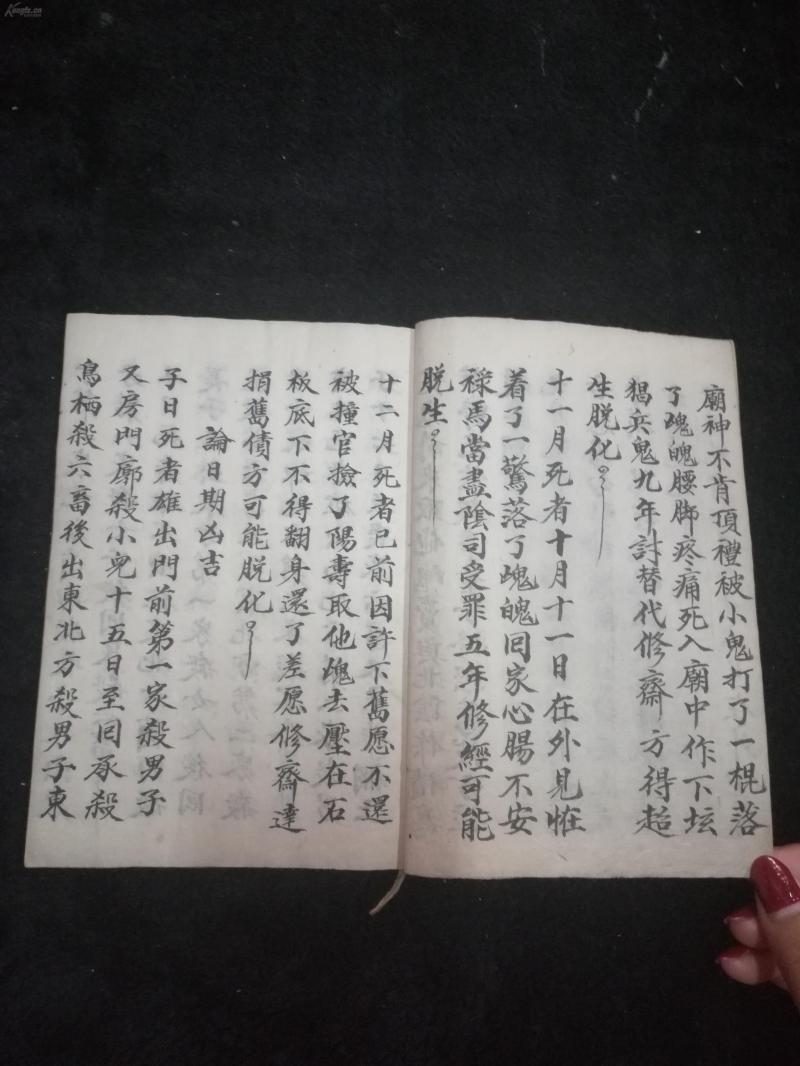 廟神不肯頂禮被小鬼打了一棍落
了魂魄腰脚疼痛死入廟中作下坛
猖兵鬼九年討替代修齋方得超
生脱化
十一月死者十月十一日在外見恠
着了一驚落了魂魄囘家心腸不安
祿馬當盡陰司受罪五年修經可能
脱生
十二月死者已前因許下舊愿不還
被撞官撿了陽壽取他魂去壓在石
板底下不得翻身還了差愿修齋達
捐舊債方可能脱化
論日期凶吉
子日死者雄出門前第一家殺男子
又房門廓殺小兒十五日至囘承殺
鳥栖殺六畜後出東北方殺男子東